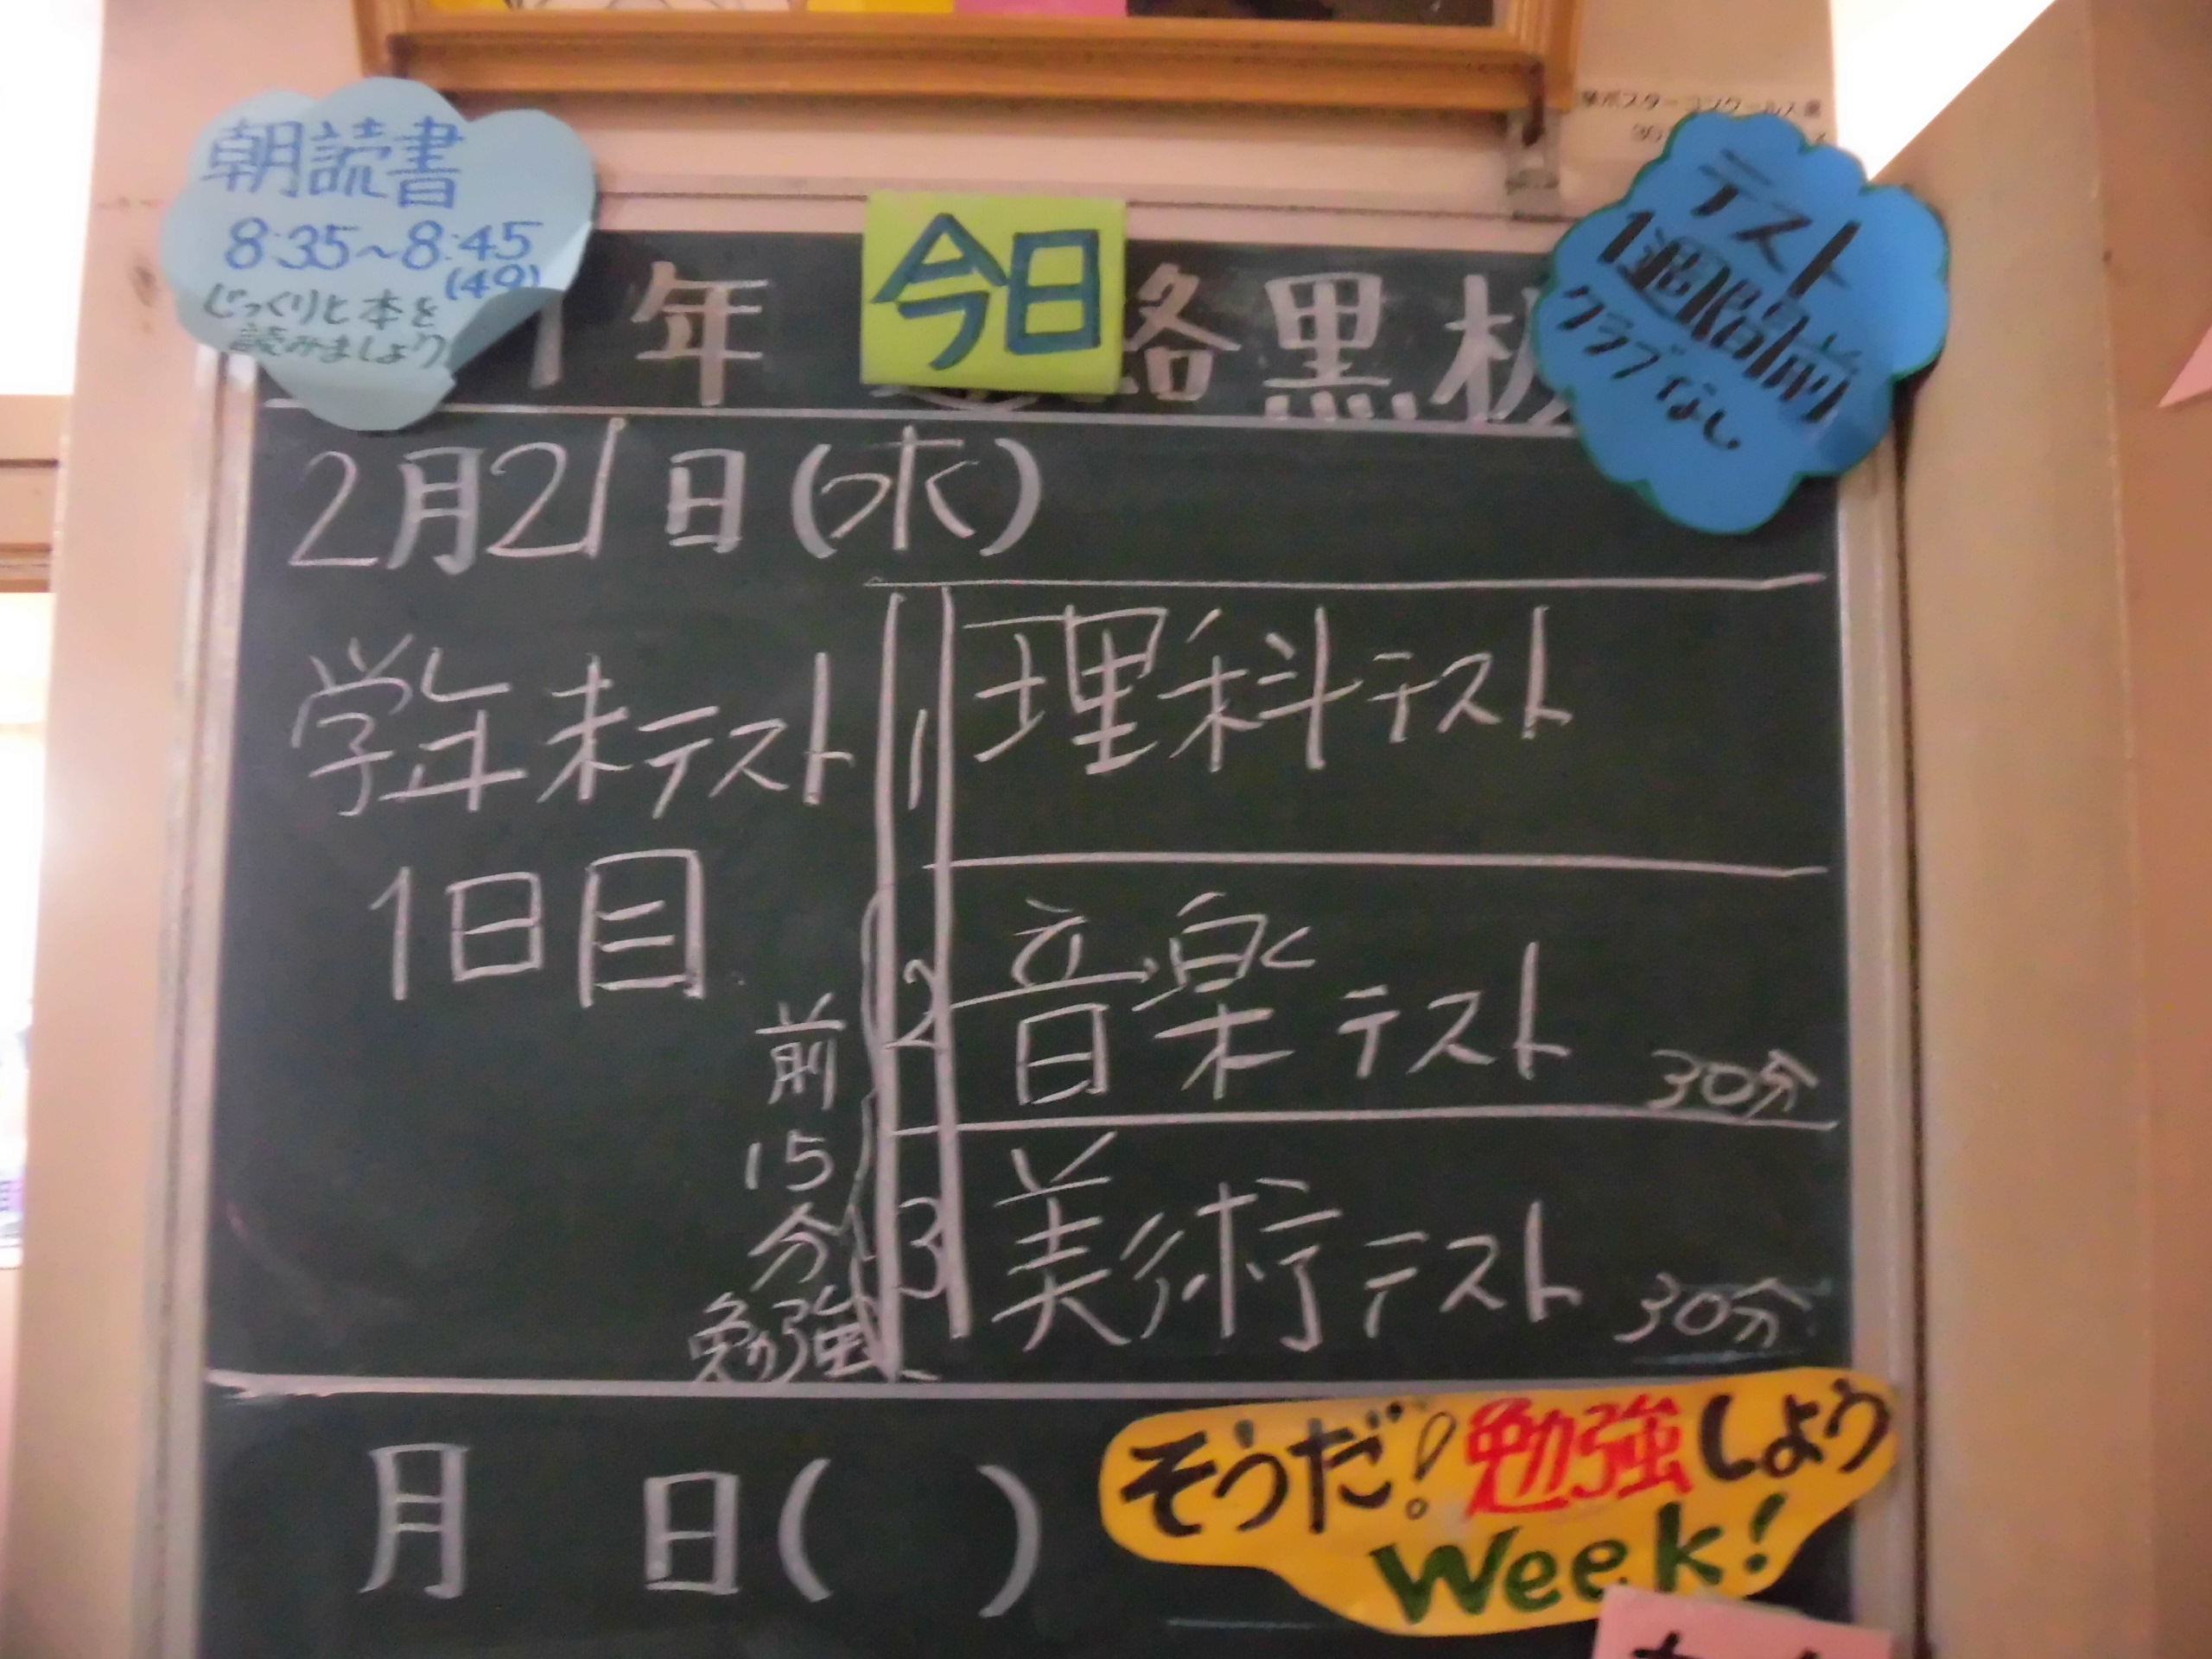 朝読書
8:35~8:45
(49)
じっくりと本を
読みましょう
今日
1年 絡黒板
テスト
1週間前
クラブなし
2月21日(水)
学年末テスト
1日目
1 理科テスト
2 音楽テスト 30分
3 美術テスト 30分
前
15
分
勉強
月 日( )
そうだ!勉強しよう
Week!